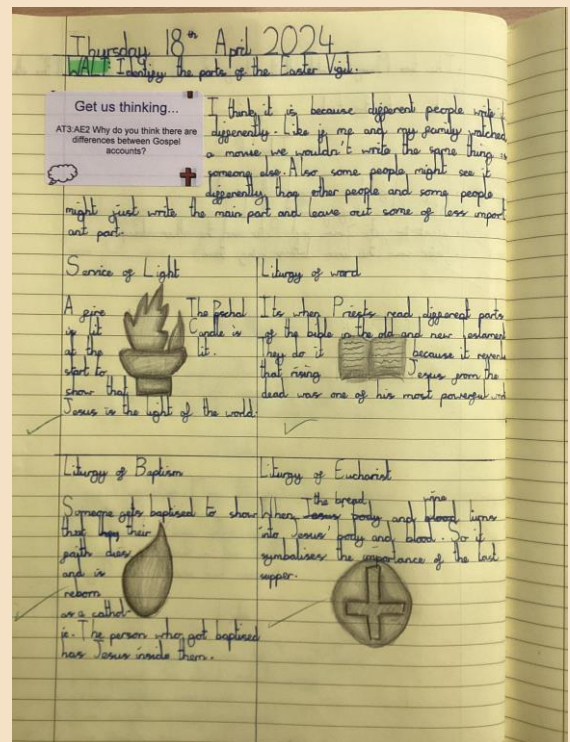 Thursday 18th April 2024
WALT: Identify the parts of the Easter Vigil.
Get us thinking...
AT3:AE2 Why do you think there are
differences between Gospel
accounts?
I think it is because different people write it
differently. Like if me and my family watched
a movie we wouldn't write the same thing as
someone else. Also some people might see it
differently than other people and some people
might just write the main part and leave out some of less import
ant part.
Service of Light
A fire
is lit
at the
start to
show that
Jesus is the light of the world.
The Pschal
Candle is
lit.
Liturgy of word
Its when Priests read different parts
of the bible in the old and new testament
They do it because it
that rising Jesus from the
dead was one of his most powerful
Liturgy of Baptism
Someone gets baptised to show
that they their
faith dies
and is
reborn
as a cathol-
ic. The person who got baptised
has Jesus inside them.
Liturgy of Eucharist
the bread wine
When Jesus body and blood turns
into Jesus' body and blood. So it
symbolises the importance of the last
supper.